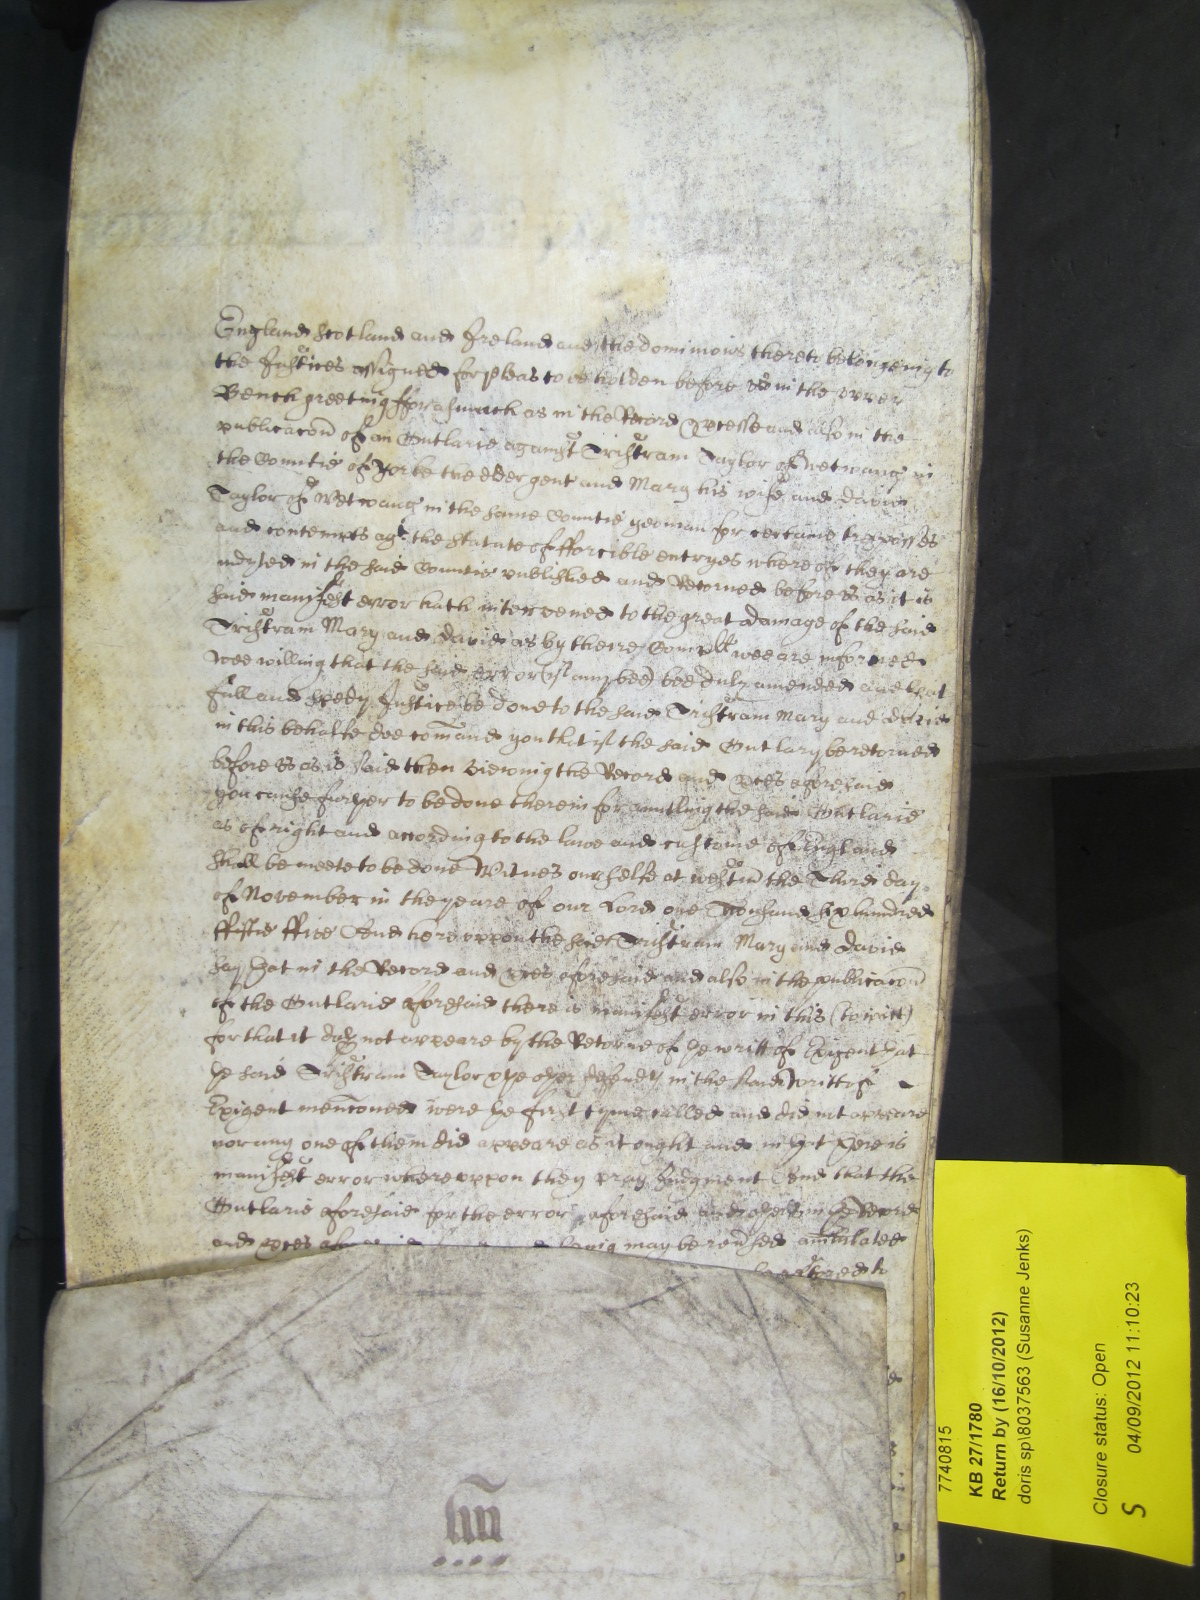 England Scotland and Ireland and the dominions thereto belongeing to
the Justices assigned for pleas to be holden before us in the upper
Bench greeting fforasmuch as in the Record Processe and also in the
publicacon of an Outlarie against Tristram Taylor of Wetwang in
the Countie of Yorke the elder gent and Mary his wife and David
Taylor of Wetwang in the same Countie yeoman for certaine trespasses
and contempts agt the Statute of fforcible entryes whereof they are
indyted in the said Countie published and Retorned before us as it is
said manifest error hath intervened to the great damage of the said
Tristram Mary and David as by theire Compl wee are informed
Wee willing that the said error (if any bee) bee duly amended and that
full and speedy Justice be done to the said Tristram Mary and David
in this behalfe doe comand you that if the said Outlary be retorned
before us as is said then viewing the Record and pces aforesaid
you cause further to be done therein for anulling the said Outlarie
as of right and according to the lawe and custome of England
shall be meete to be done Witnes our selfe at Westm the Third day
of November in the yeare of our Lord one Thousand six hundred
ffiftie ffive And hereuppon the said Tristram Mary and David
say that in the Record and pces aforesaid and also in the publicacon
of the Outlarie aforesaid there is manifest error in this (to witt)
for that it doth not appeare by the Retorne of the writt of Exigent that
the said Tristram Taylor & the other defendts in the said Writt of
Exigent menconed were the first tyme called and did not appeare
nor any one of them did appeare as it ought and in that there is
manifest error whereuppon they pray Judgment And that the
Outlarie aforesaid for the error aforesaid and others in the Record
and pces may be reversed annulated
iiii
7740815
KB 27/1780
Return by (16/10/2012)
doris sp\8037563 (Susanne Jenks)
Closure status: Open
S 04/09/2012 11:10:23